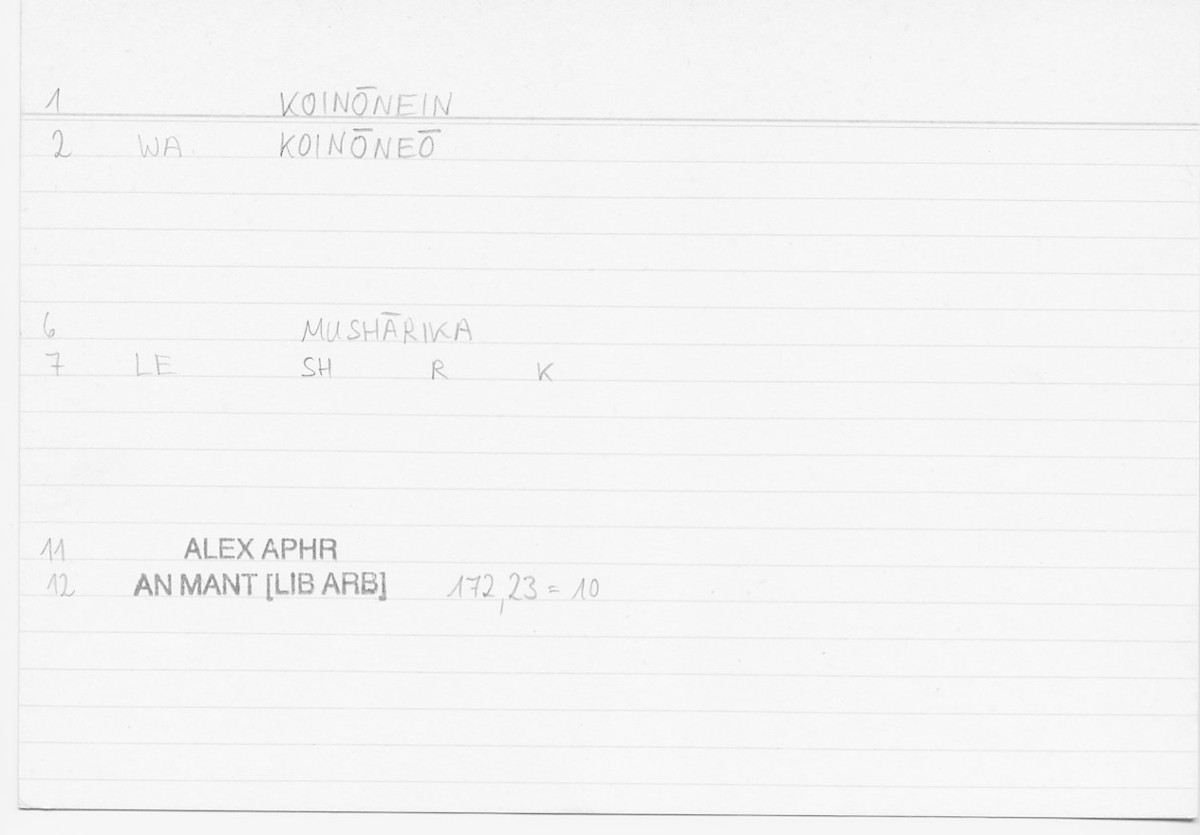 1 KOINŌNEIN
2 WA KOINŌNEŌ
6 MUSHĀRIKA
7 LE SH R K
11 ALEX APHR
12 AN MANT [LIB ARB] 172,23 = 10